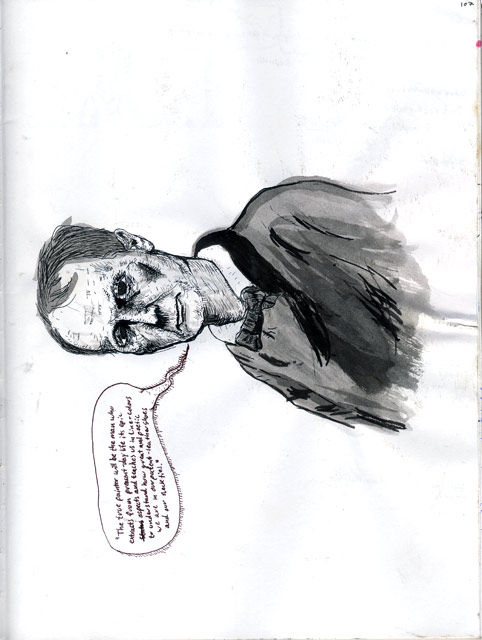 107
"The true painter will be the man who
extracts from present-day life its epic
aspects and teaches us in line + colors
to understand how great and poetic
we are in our patent-leather shoes
and our neckties."